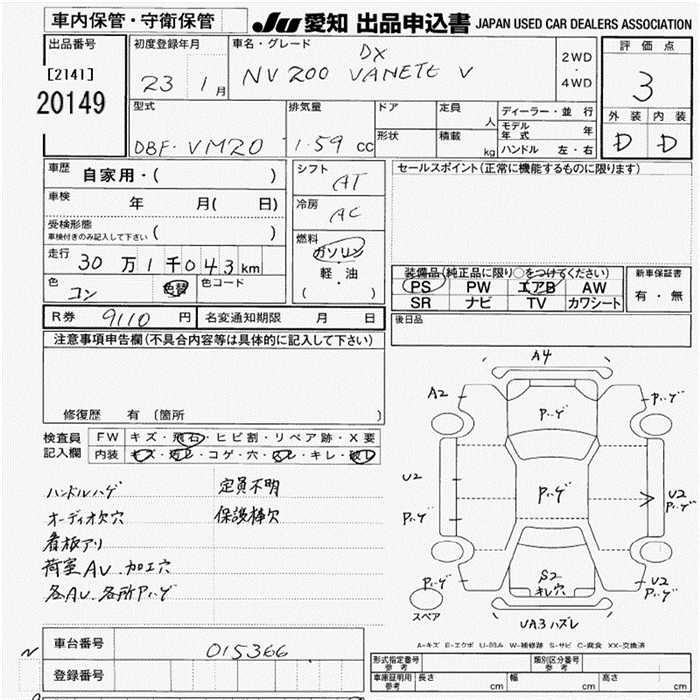 車内保管・守衛保管
JU 愛知 出品申込書 JAPAN USED CAR DEALERS ASSOCIATION
出品番号
[2141]
20149
初度登録年月
23 1月
車名・グレード
DX
NV200 VANETE V
2WD
・
4WD
評価点
3
外装 内装
D D
型式
DBF-VM20
排気量
1.59 cc
ドア
形状
定員 人
積載 kg
ディーラー・並行
モデル年式 年
ハンドル 左・右
車歴 自家用・( )
車検 年 月( 日)
受検形態
車検付きのみ記入して下さい ( )
走行 30万1千043km
色 コン 色替 色コード
シフト
AT
冷房
AC
燃料
ガソリン
軽・油
( )
セールスポイント(正常に機能するものに限ります)
装備品(純正品に限り○をつけてください)
PS PW エアB AW
SR ナビ TV カワシート
新車保証書
有・無
R券 9110 円 名変通知期限 月 日
後日品
注意事項申告欄(不具合内容等は具体的に記入して下さい)
修復歴 有 (箇所 )
検査員
記入欄
FW キズ・飛石・ヒビ割・リペア跡・X要
内装 キズ・汚レ・コゲ・穴・スレ・キレ・破レ
ハンドルハゲ 定員不明
オーディオ欠穴 保護棒欠
看板アリ
荷室AU.加工穴
各AU.各所Pハゲ
A4
A2
Pハゲ
Pハゲ
U2
Pハゲ
Pハゲ
U2
Pハゲ
S2
キレ穴
U2
Pハゲ
Pハゲ
スペア
UA3ハズレ
A-キズ E-エクボ U-凹み W-補修跡 S-サビ C-腐食 XX-交換済
車台番号 015366
登録番号
N
形式指定番号
参考
類別区分番号
参考
車庫証明用
参考
長さ 幅 高さ